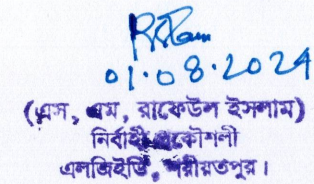 01.08.2024
(এস, এম, রাফেউল ইসলাম)
নির্বাহী প্রকৌশলী
এলজিইডি, শরীয়তপুর।